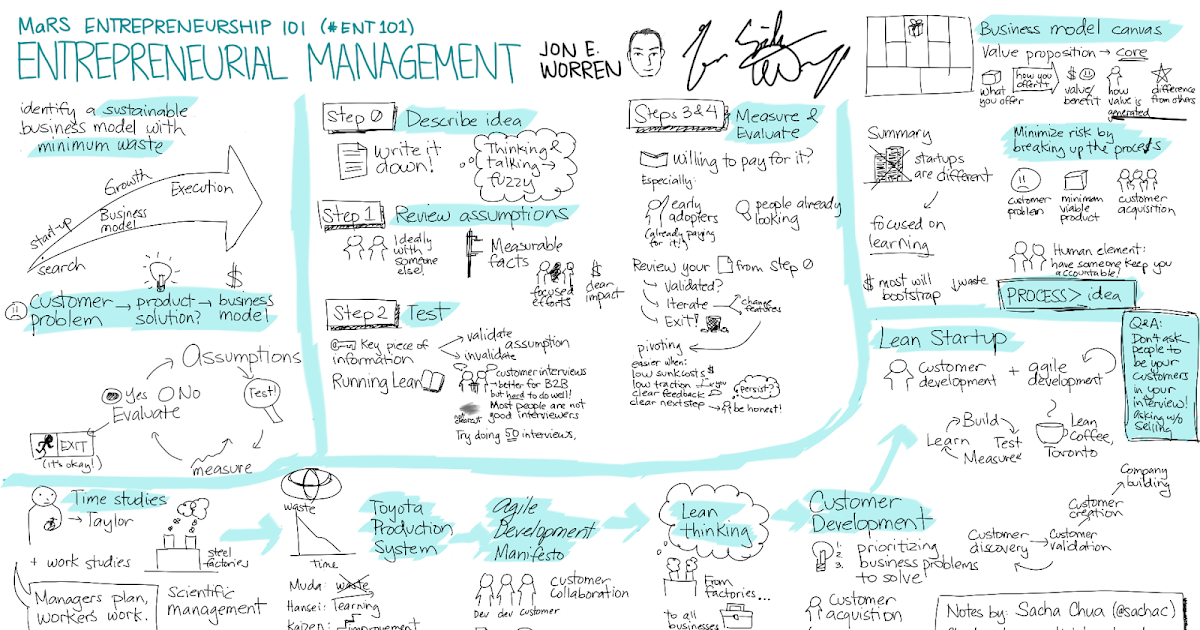 MaRS ENTREPRENEURSHIP 101 (#ENT101)
ENTREPRENEURIAL MANAGEMENT
JON E.
WORREN
identify a sustainable
business model with
minimum waste
start-up
Growth
Execution
Business
model
search
Customer
problem
product
solution?
$
business
model
Assumptions
Test!
measure
Evaluate
Yes
No
EXIT
(it's okay!)
Step 0
Describe idea
write it
down!
Thinking &
talking →
fuzzy
Step 1
Review assumptions
Ideally
with
someone
else!
Measurable
facts
focused
efforts
$
clear
impact
Step 2
Test
Key piece of
information
validate
invalidate
assumption
Running Lean
customer interviews
→ better for B2B
but hard to do well!
Most people are not
good interviewers
Try doing 50 interviews,
Steps 3&4
Measure &
Evaluate
Willing to pay for it?
Especially:
early
adopters
(already paying
for it!)
people already
looking
Review your
from step 0
Validated?
Iterate
change
features
Exit!
pivoting
easier when:
low sunk costs $
low traction
clear feedback
clear next step
persist?
be honest!
Business model canvas
Value proposition → core
what
you offer
how you
offer it
$
value/
benefit
how
value is
generated
difference
from others
Summary
startups
are different
focused on
learning
$ most will
bootstrap
↓waste
Minimize risk by
breaking up the process
customer
problem
minimum
viable
product
customer
acquisition
Human element:
have someone keep you
accountable!
PROCESS > idea
Lean Startup
Customer
development
+ agile
development
Build
Test
Measure
Learn
Lean
Coffee,
Toronto
Q&A:
Don't ask
people to
be your
customers
in your
interview!
asking w/o
selling
Time studies
→ Taylor
+ work studies
steel
factories
Managers plan,
workers work.
Scientific
management
waste
time
Toyota
Production
System
Muda: waste
Hansei: learning
Kaizen: improvement
Agile
Development
Manifesto
Dev dev customer
customer
collaboration
Lean
thinking
From
factories...
to all
businesses!
Customer
Development
1.
2.
3.
prioritizing
business problems
to solve!
customer
acquistion
Customer
discovery
Customer
validation
Customer
creation
Company
building
Notes by: Sacha Chua (@sachac)